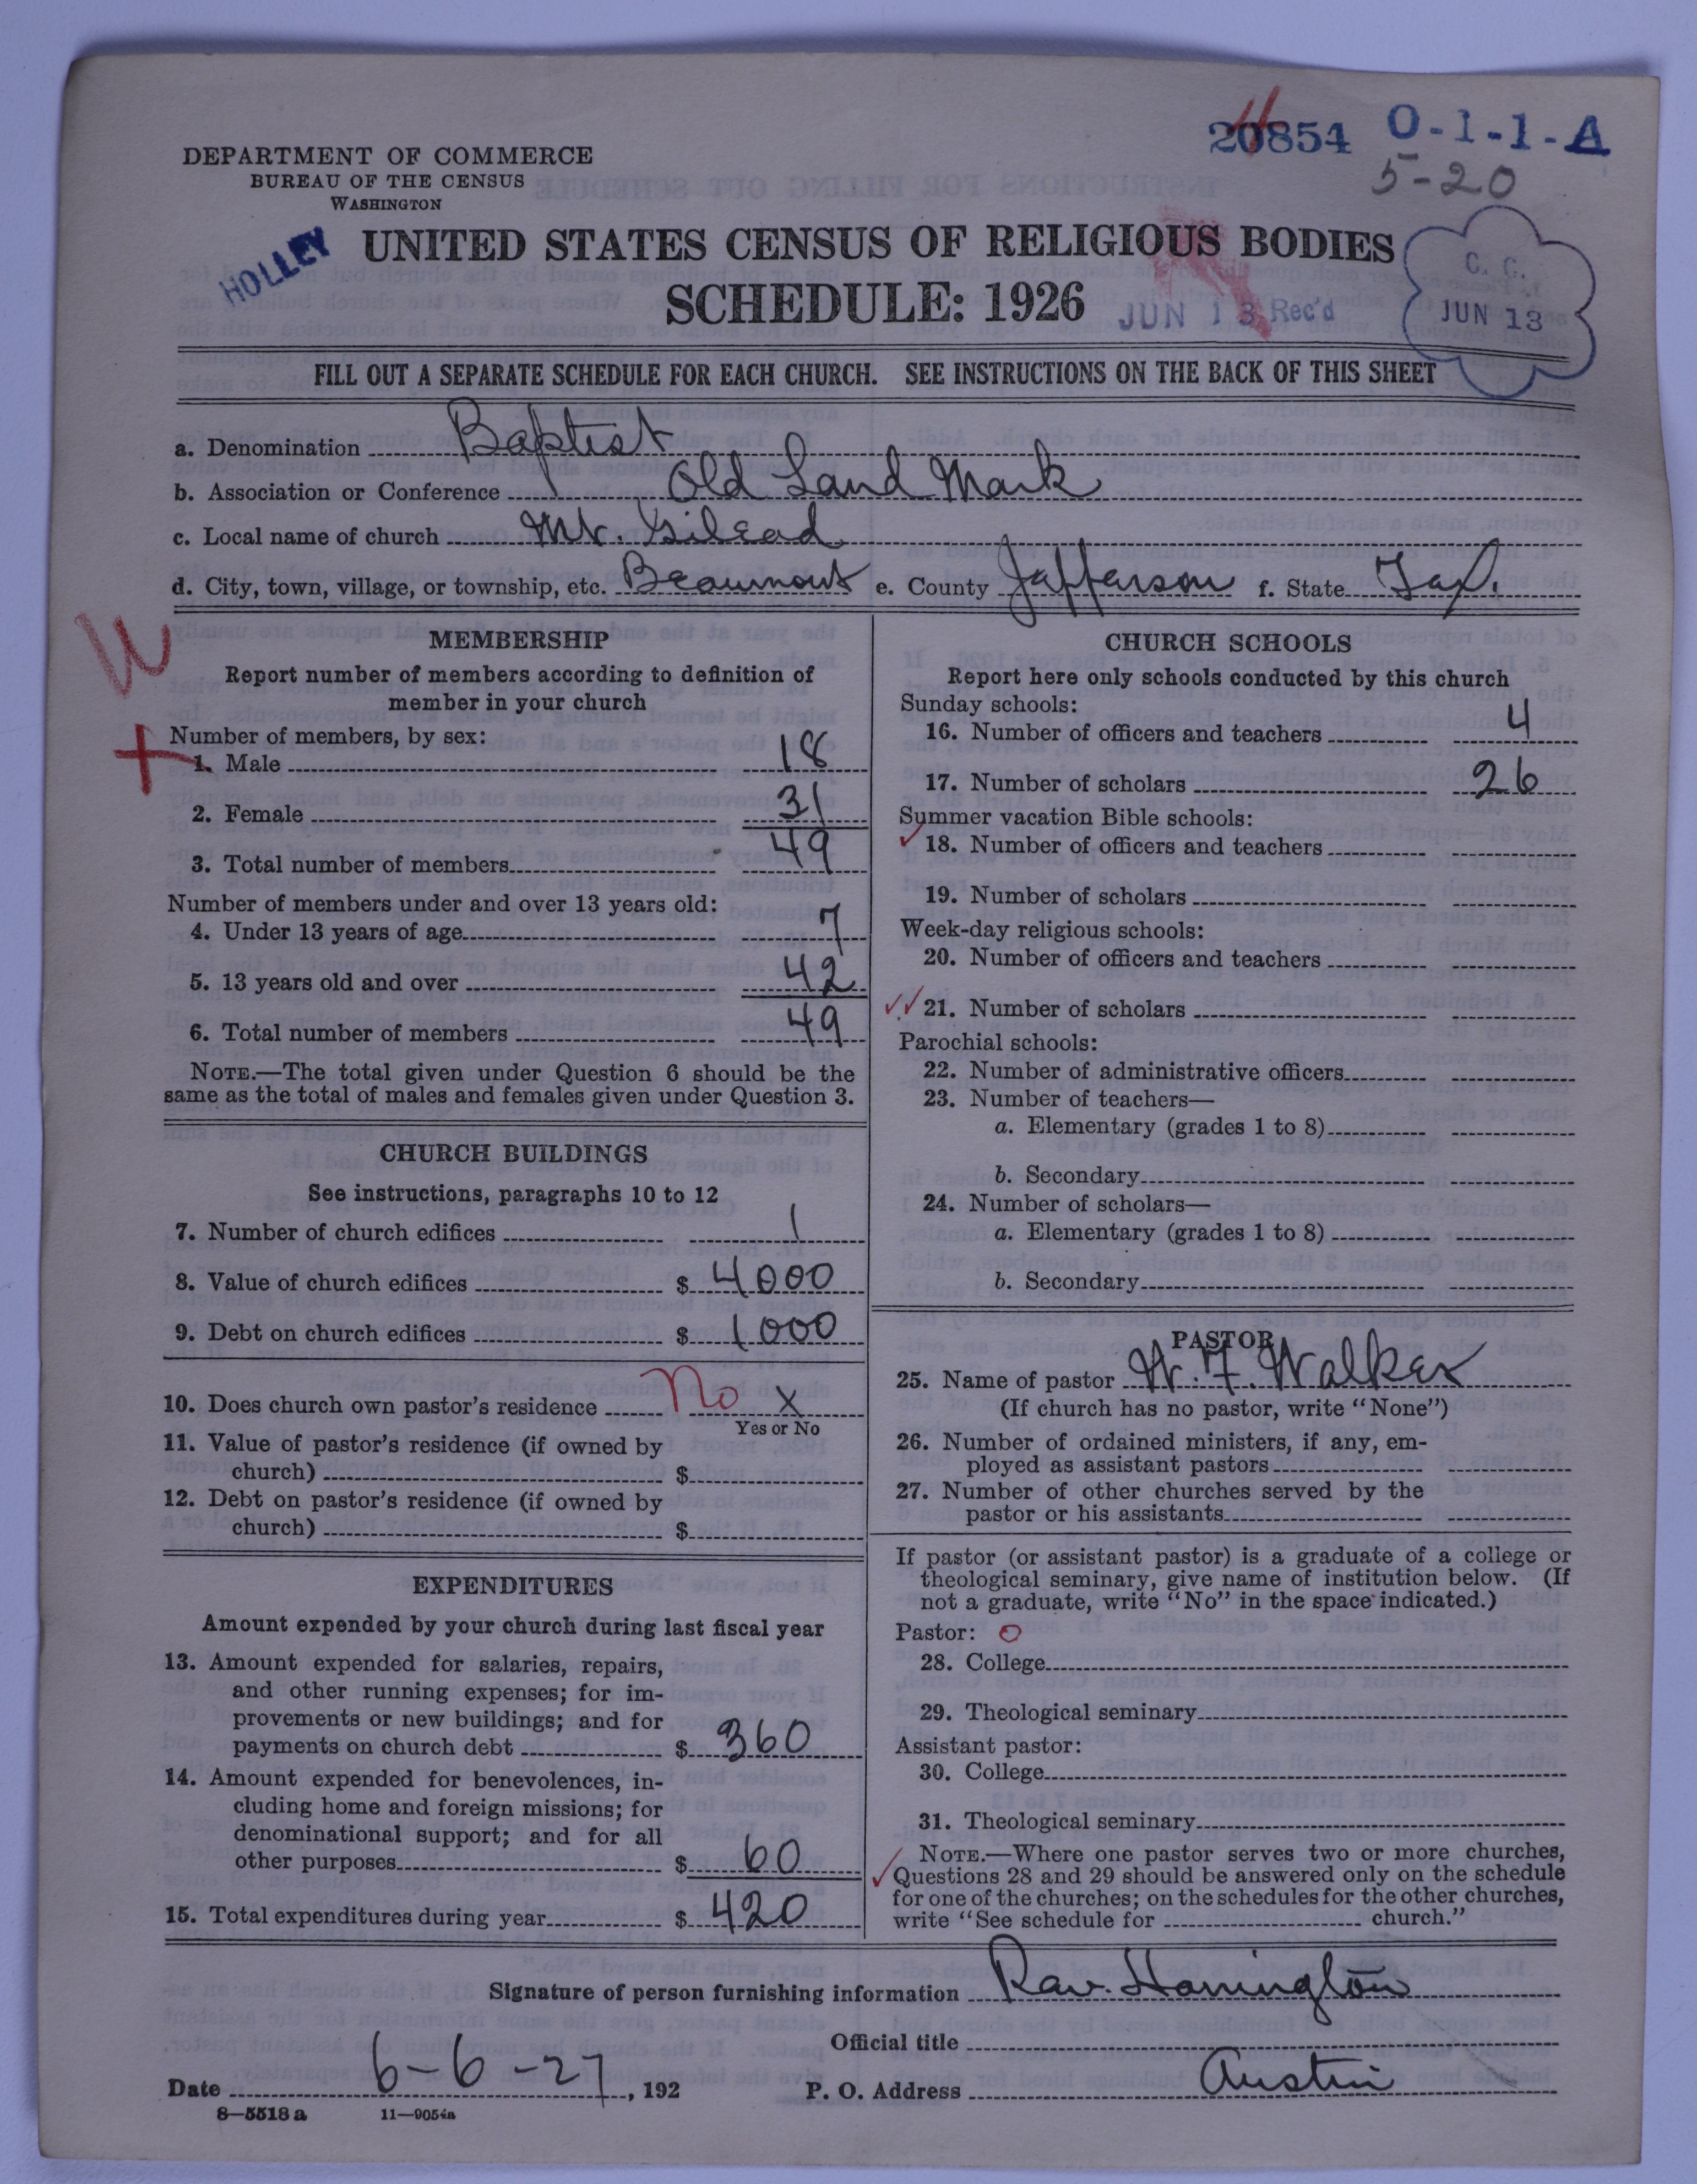 20854 O-1-1-A
5-20
DEPARTMENT OF COMMERCE
BUREAU OF THE CENSUS
WASHINGTON
HOLLEY
UNITED STATES CENSUS OF RELIGIOUS BODIES
SCHEDULE: 1926
JUN 13 Rec'd
C. C.
JUN 13
FILL OUT A SEPARATE SCHEDULE FOR EACH CHURCH. SEE INSTRUCTIONS ON THE BACK OF THIS SHEET
a. Denomination Baptist
b. Association or Conference Old Land Mark
c. Local name of church Mt. Gilead
d. City, town, village, or township, etc. Beaumont e. County Jafferson f. State Tex.
MEMBERSHIP
Report number of members according to definition of
member in your church
Number of members, by sex:
1. Male 18
2. Female 31
3. Total number of members 49
Number of members under and over 13 years old:
4. Under 13 years of age 7
5. 13 years old and over 42
6. Total number of members 49
NOTE.—The total given under Question 6 should be the
same as the total of males and females given under Question 3.
CHURCH BUILDINGS
See instructions, paragraphs 10 to 12
7. Number of church edifices 1
8. Value of church edifices $ 4000
9. Debt on church edifices $ 1000
10. Does church own pastor's residence No X
Yes or No
11. Value of pastor's residence (if owned by
church) $
12. Debt on pastor's residence (if owned by
church) $
EXPENDITURES
Amount expended by your church during last fiscal year
13. Amount expended for salaries, repairs,
and other running expenses; for im-
provements or new buildings; and for
payments on church debt $ 360
14. Amount expended for benevolences, in-
cluding home and foreign missions; for
denominational support; and for all
other purposes $ 60
15. Total expenditures during year $ 420
CHURCH SCHOOLS
Report here only schools conducted by this church
Sunday schools:
16. Number of officers and teachers 4
17. Number of scholars 26
Summer vacation Bible schools:
18. Number of officers and teachers
19. Number of scholars
Week-day religious schools:
20. Number of officers and teachers
21. Number of scholars
Parochial schools:
22. Number of administrative officers
23. Number of teachers—
a. Elementary (grades 1 to 8)
b. Secondary
24. Number of scholars—
a. Elementary (grades 1 to 8)
b. Secondary
PASTOR
25. Name of pastor W. F. Walker
(If church has no pastor, write "None")
26. Number of ordained ministers, if any, em-
ployed as assistant pastors
27. Number of other churches served by the
pastor or his assistants
If pastor (or assistant pastor) is a graduate of a college or
theological seminary, give name of institution below. (If
not a graduate, write "No" in the space indicated.)
Pastor: O
28. College
29. Theological seminary
Assistant pastor:
30. College
31. Theological seminary
NOTE.—Where one pastor serves two or more churches,
Questions 28 and 29 should be answered only on the schedule
for one of the churches; on the schedules for the other churches,
write "See schedule for church."
Signature of person furnishing information Rav. Harrington
Official title
Date 6-6-27, 192 P. O. Address Austin
8—5518 a 11—9054a